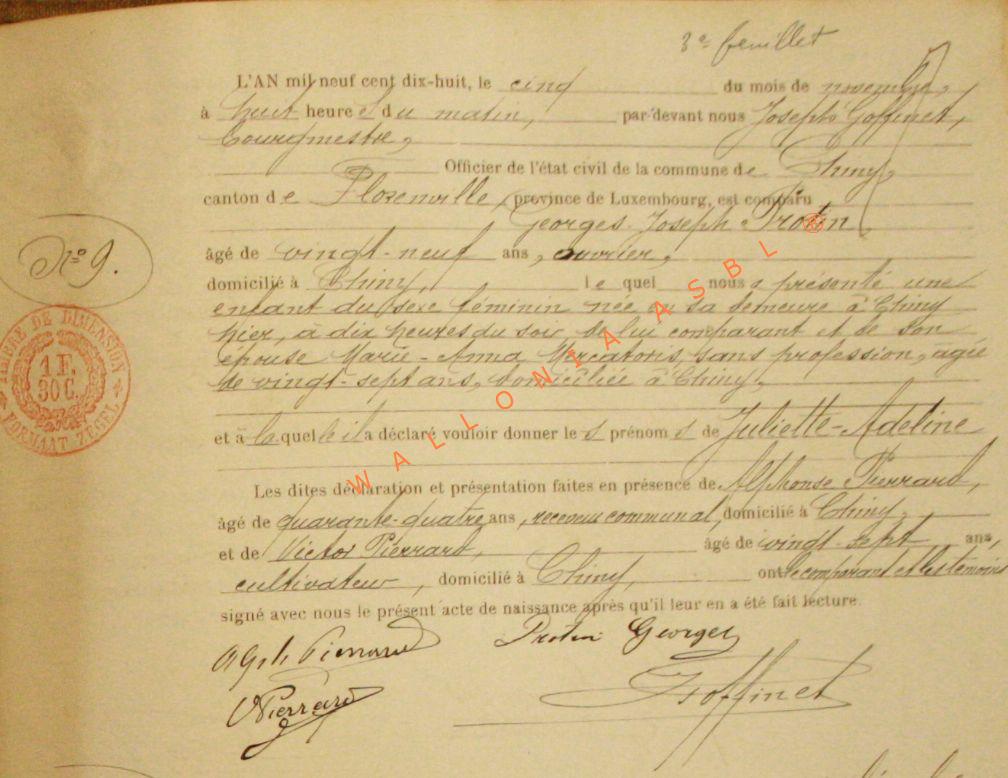 3e feuillet
L'AN mil neuf cent dix-huit, le cinq du mois de novembre,
à huit heures du matin, par-devant nous Joseph Goffinet,
bourgmestre,
Officier de l'état civil de la commune de Chiny,
canton de Florenville, province de Luxembourg, est comparu
Georges-Joseph Protin,
âgé de vingt-neuf ans, ouvrier,
domicilié à Chiny, lequel nous a présenté une
enfant du sexe féminin née en sa demeure à Chiny
hier, à dix heures du soir, de lui comparant et de son
épouse Marie-Anna Mercatoris, sans profession, âgée
de vingt-sept ans, domiciliée à Chiny,
et à laquelle il a déclaré vouloir donner les prénoms de Juliette-Adeline
Les dites déclaration et présentation faites en présence de Alphonse Pierrard,
âgé de quarante-quatre ans, receveur communal, domicilié à Chiny,
et de Victor Pierrard, âgé de vingt-sept ans,
cultivateur, domicilié à Chiny, ont le comparant et les témoins
signé avec nous le présent acte de naissance après qu'il leur en a été fait lecture.
Alph Pierrard Protin Georges
V Pierrard Goffinet
No 9.
TIMBRE DE DIMENSION
1 F.
30 C.
FORMAAT ZEGEL
WALLONIA ASBL ©